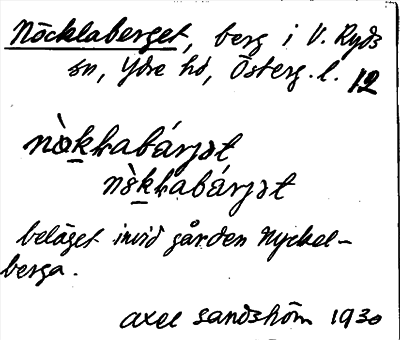 Nöcklaberget, berg i V. Ryds
sn, Ydre hd, Österg. l. 12
nø̀kḷabárjət
nɵ̀kḷabárjət
beläget invid gården Nyckel-
berga.
Axel Sandström 1930